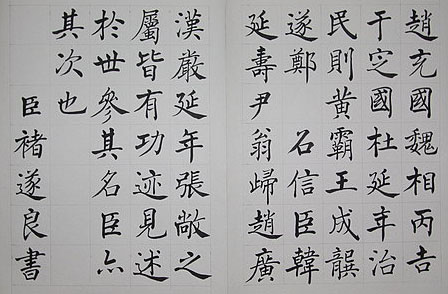 趙充國魏相丙吉
于定國杜延年治
民則黃霸王成龔
遂鄭 石信臣韓
延壽尹翁歸趙廣
漢嚴延年張敞之
屬皆有功迹見述
於世參其名臣亦
其次也
臣褚遂良書